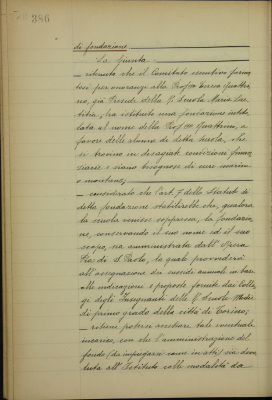 386
di fondazione
La Giunta
— ritenuto che il Comitato esecutivo forma
tosi per onoranze alla Prof.ssa Teresa Quattri
no, già Preside della R. Scuola Maria Lae
titia, ha istituito una fondazione intito
lata al nome della Prof.ssa Quattrino, a
favore delle alunne di detta scuola, che
si trovino in disagiate condizioni finan
ziarie e siano bisognose di cure marine
o montane;
— considerato che l'art. 7 dello Statuto di
detta fondazione stabilirebbe che, qualora
la scuola venisse soppressa, la fondazio
ne, conservando il suo nome ed il suo
scopo, sia amministrata dall'Opera
Pia di S. Paolo, la quale provvederà
all'assegnazione dei sussidi annuali in base
alle indicazioni e proposte fornite dai Colle
gi degli Insegnanti delle R. Scuole Medie
di primo grado della città di Torino;
— ritiene potersi accettare tale eventuale
incarico, con che l'amministrazione del
fondo (da impiegarsi come in atti) sia devo
luta all'Istituto colle modalità da